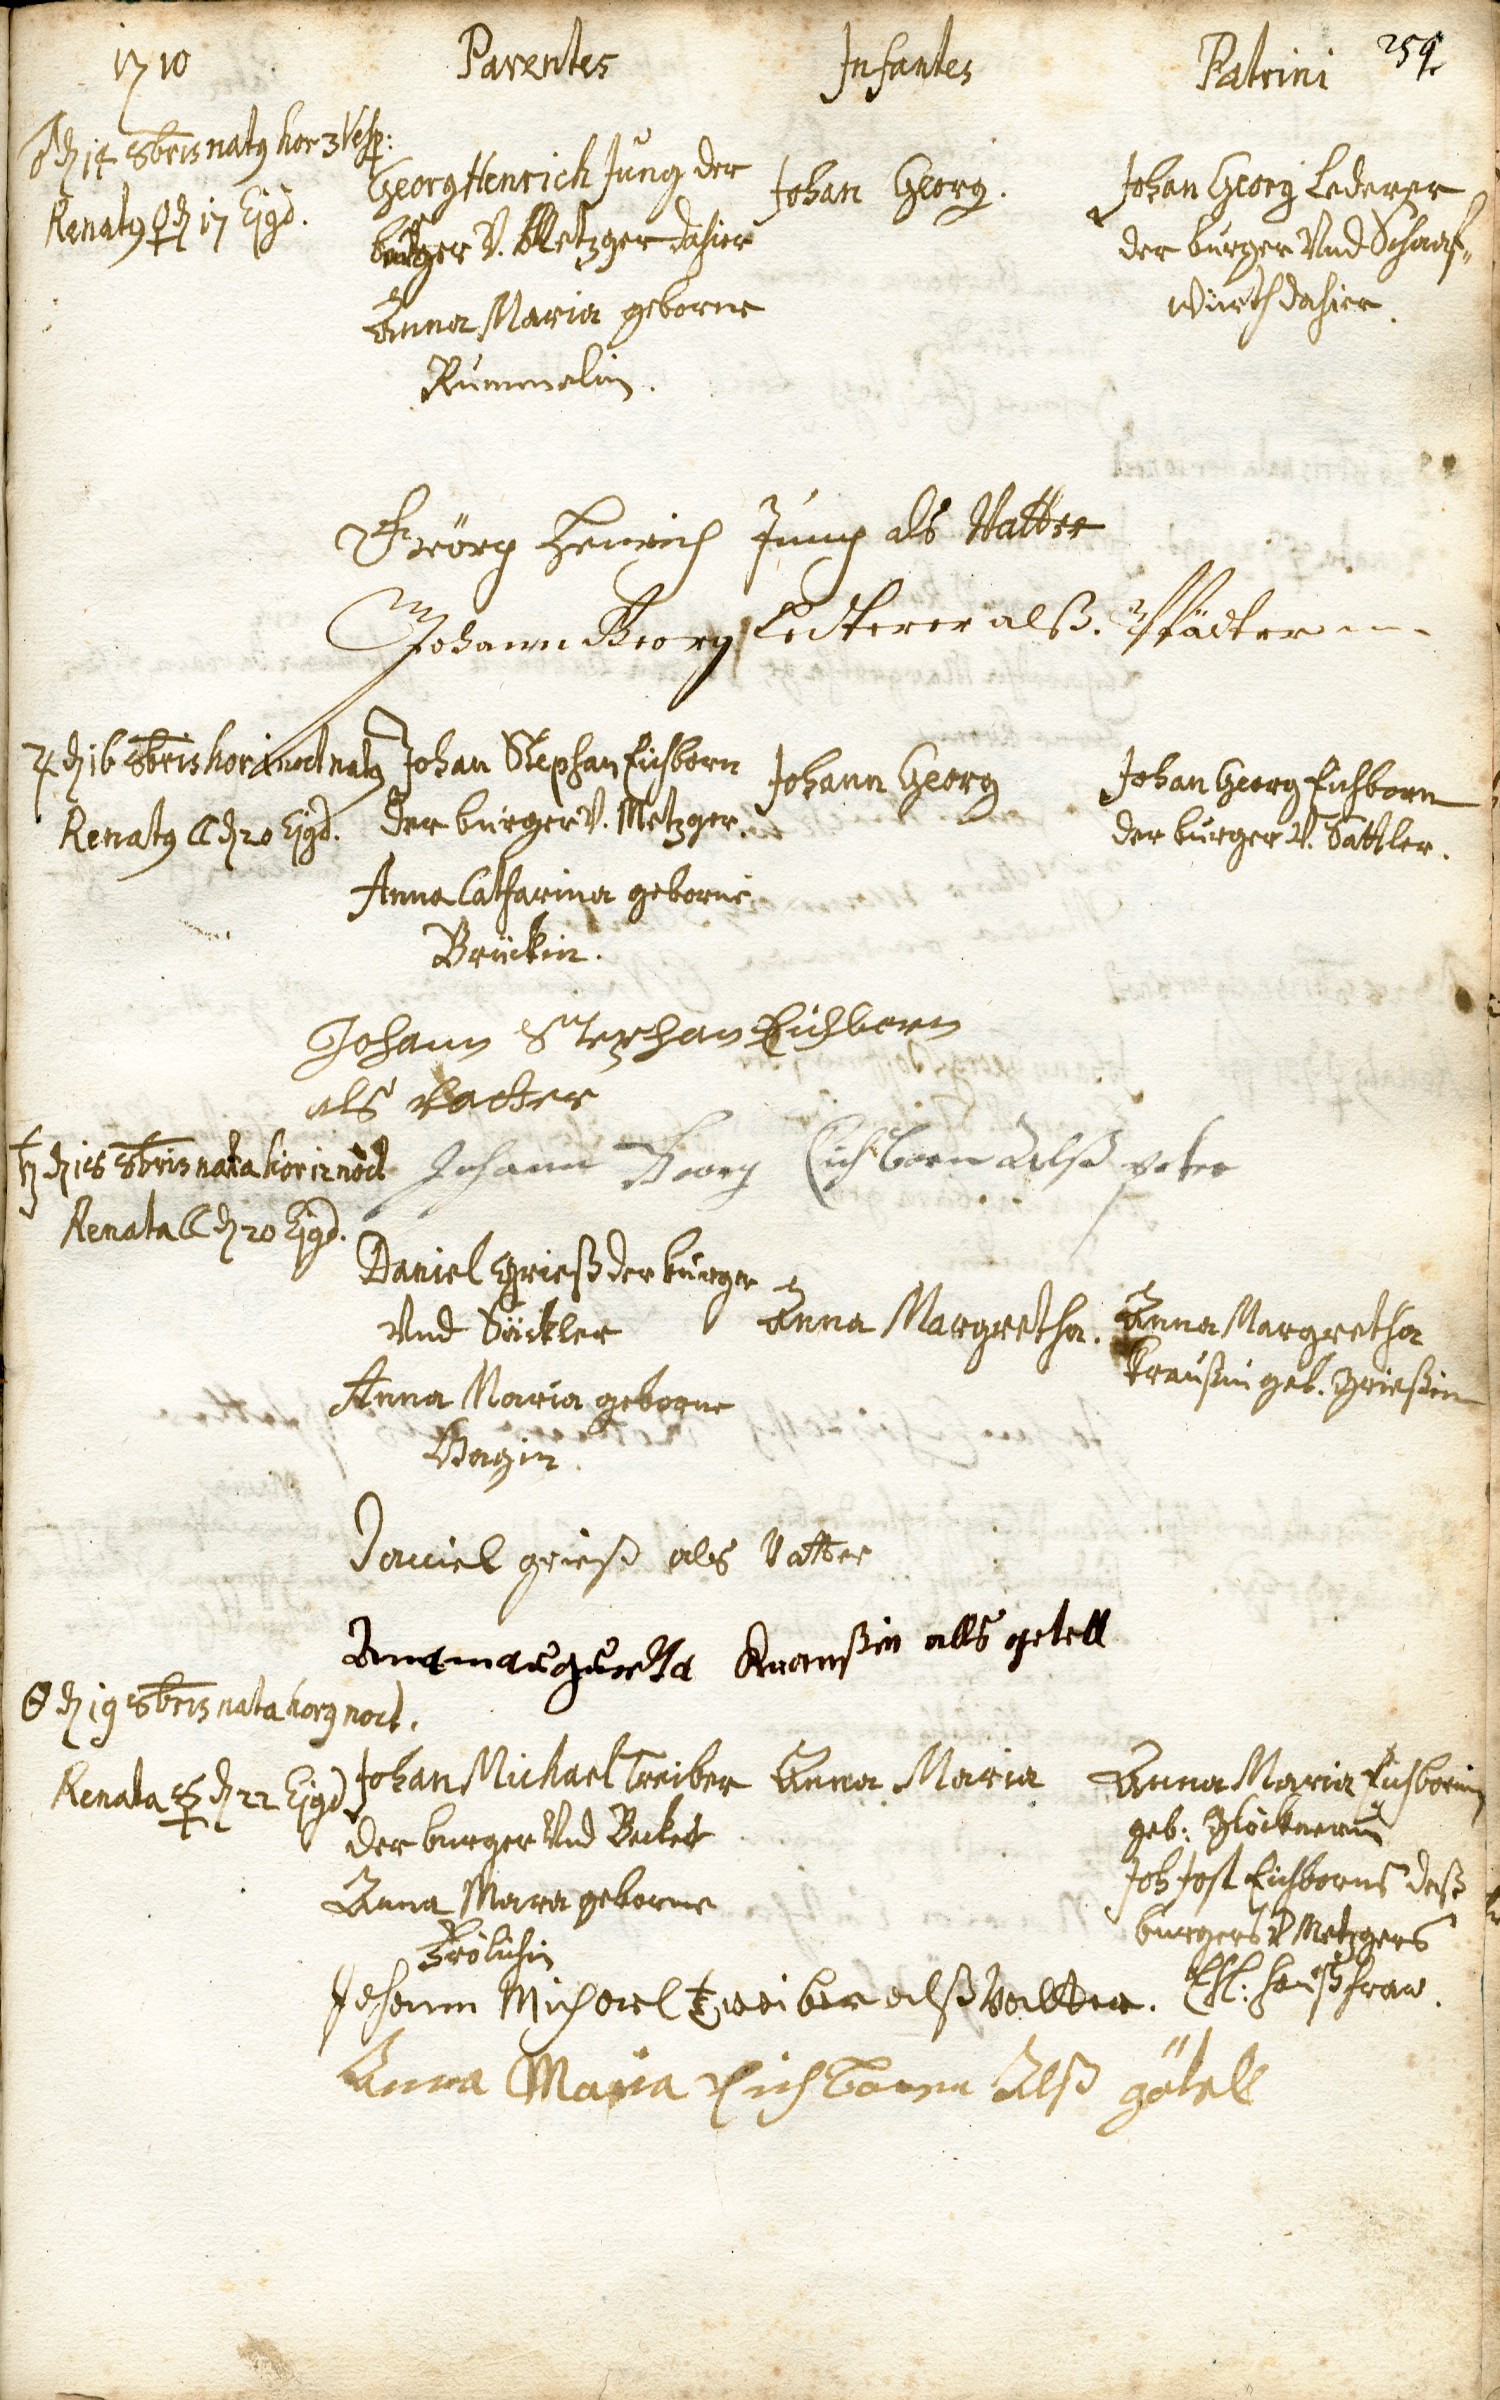 1710 Parentes Infantes Patrini 259
♂ d 14 8bris natq hor 3 Vesp:
Renatq ♀ d 17 Ejqd.
Georg Henrich Jung der
burger V. Metzger dahier
Anna Maria geborne
Rümmelin.
Johan Georg.
Johan Georg Lederer
der burger Vnd Schaaf-
würth dahier.
Geörg Henrich Jung als Vatter
Johann Georg Leckterer alß. Pfäcter
♃ d 16 8bris hor noct natq
Renatq ☾ d 20 Ejqd.
Johan Stephan Eichborn
der burger V. Metzger.
Anna Catharina geborne
Brückin.
Johann Georg
Johan Georg Eichborn
der burger V. Sattler.
Johann Stephan Eichborn
als vatter
Johann Georg Eichborn Alß peter
♄ d 18 8bris nata hor 12 noct
Renata ☾ d 20 Ejqd.
Daniel Grieß der burger
Vnd Säckler
Anna Maria geborne
Anna Margretha.
Anna Margretha
Kraußin geb. Grießin
Daniel grieß als Vatter
Anamargureta Kraußin alls getell
☉ d 19 8bris nata hor 9 noct.
Renata ☿ d 22 Ejqd
Johan Michael Treiber
der burger Vnd Becker
Anna Mara geborne
Frölichin
Anna Maria
Anna Maria Eichbornin
geb: Glöcknerin
Joh Jost Eichborns deß
burgers V Metzgers
Ehl: haußfraw.
Johann Michael treiber alß Vatter.
Anna Maria Eichbornn Alß götell